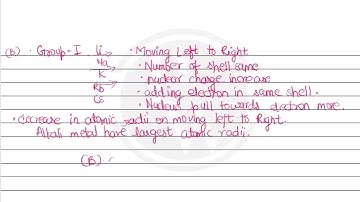 (b) · Group-I Li · Moving Left to Right
Na · Number of shell same
K · nuclear charge increase
Rb · adding electron in same shell.
Cs · Nucleus pull towards electron more.
· decrease in atomic radii on moving left to Right.
Alkali metal have largest atomic radii.
(B)